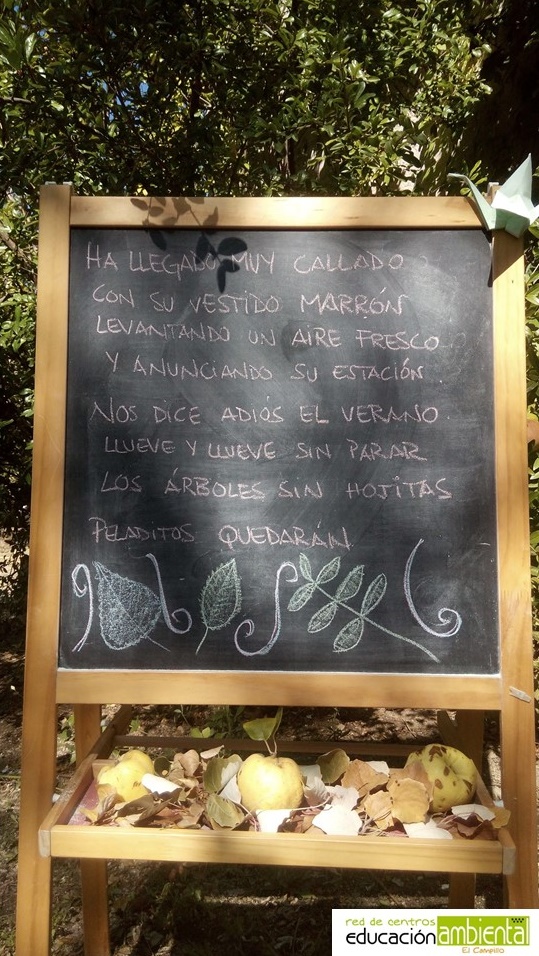 HA LLEGADO MUY CALLADO
CON SU VESTIDO MARRÓN
LEVANTANDO UN AIRE FRESCO
Y ANUNCIANDO SU ESTACIÓN
NOS DICE ADIÓS EL VERANO
LLUEVE Y LLUEVE SIN PARAR
LOS ÁRBOLES SIN HOJITAS
PELADITOS QUEDARÁN
red de centros
educación ambiental
El Campillo